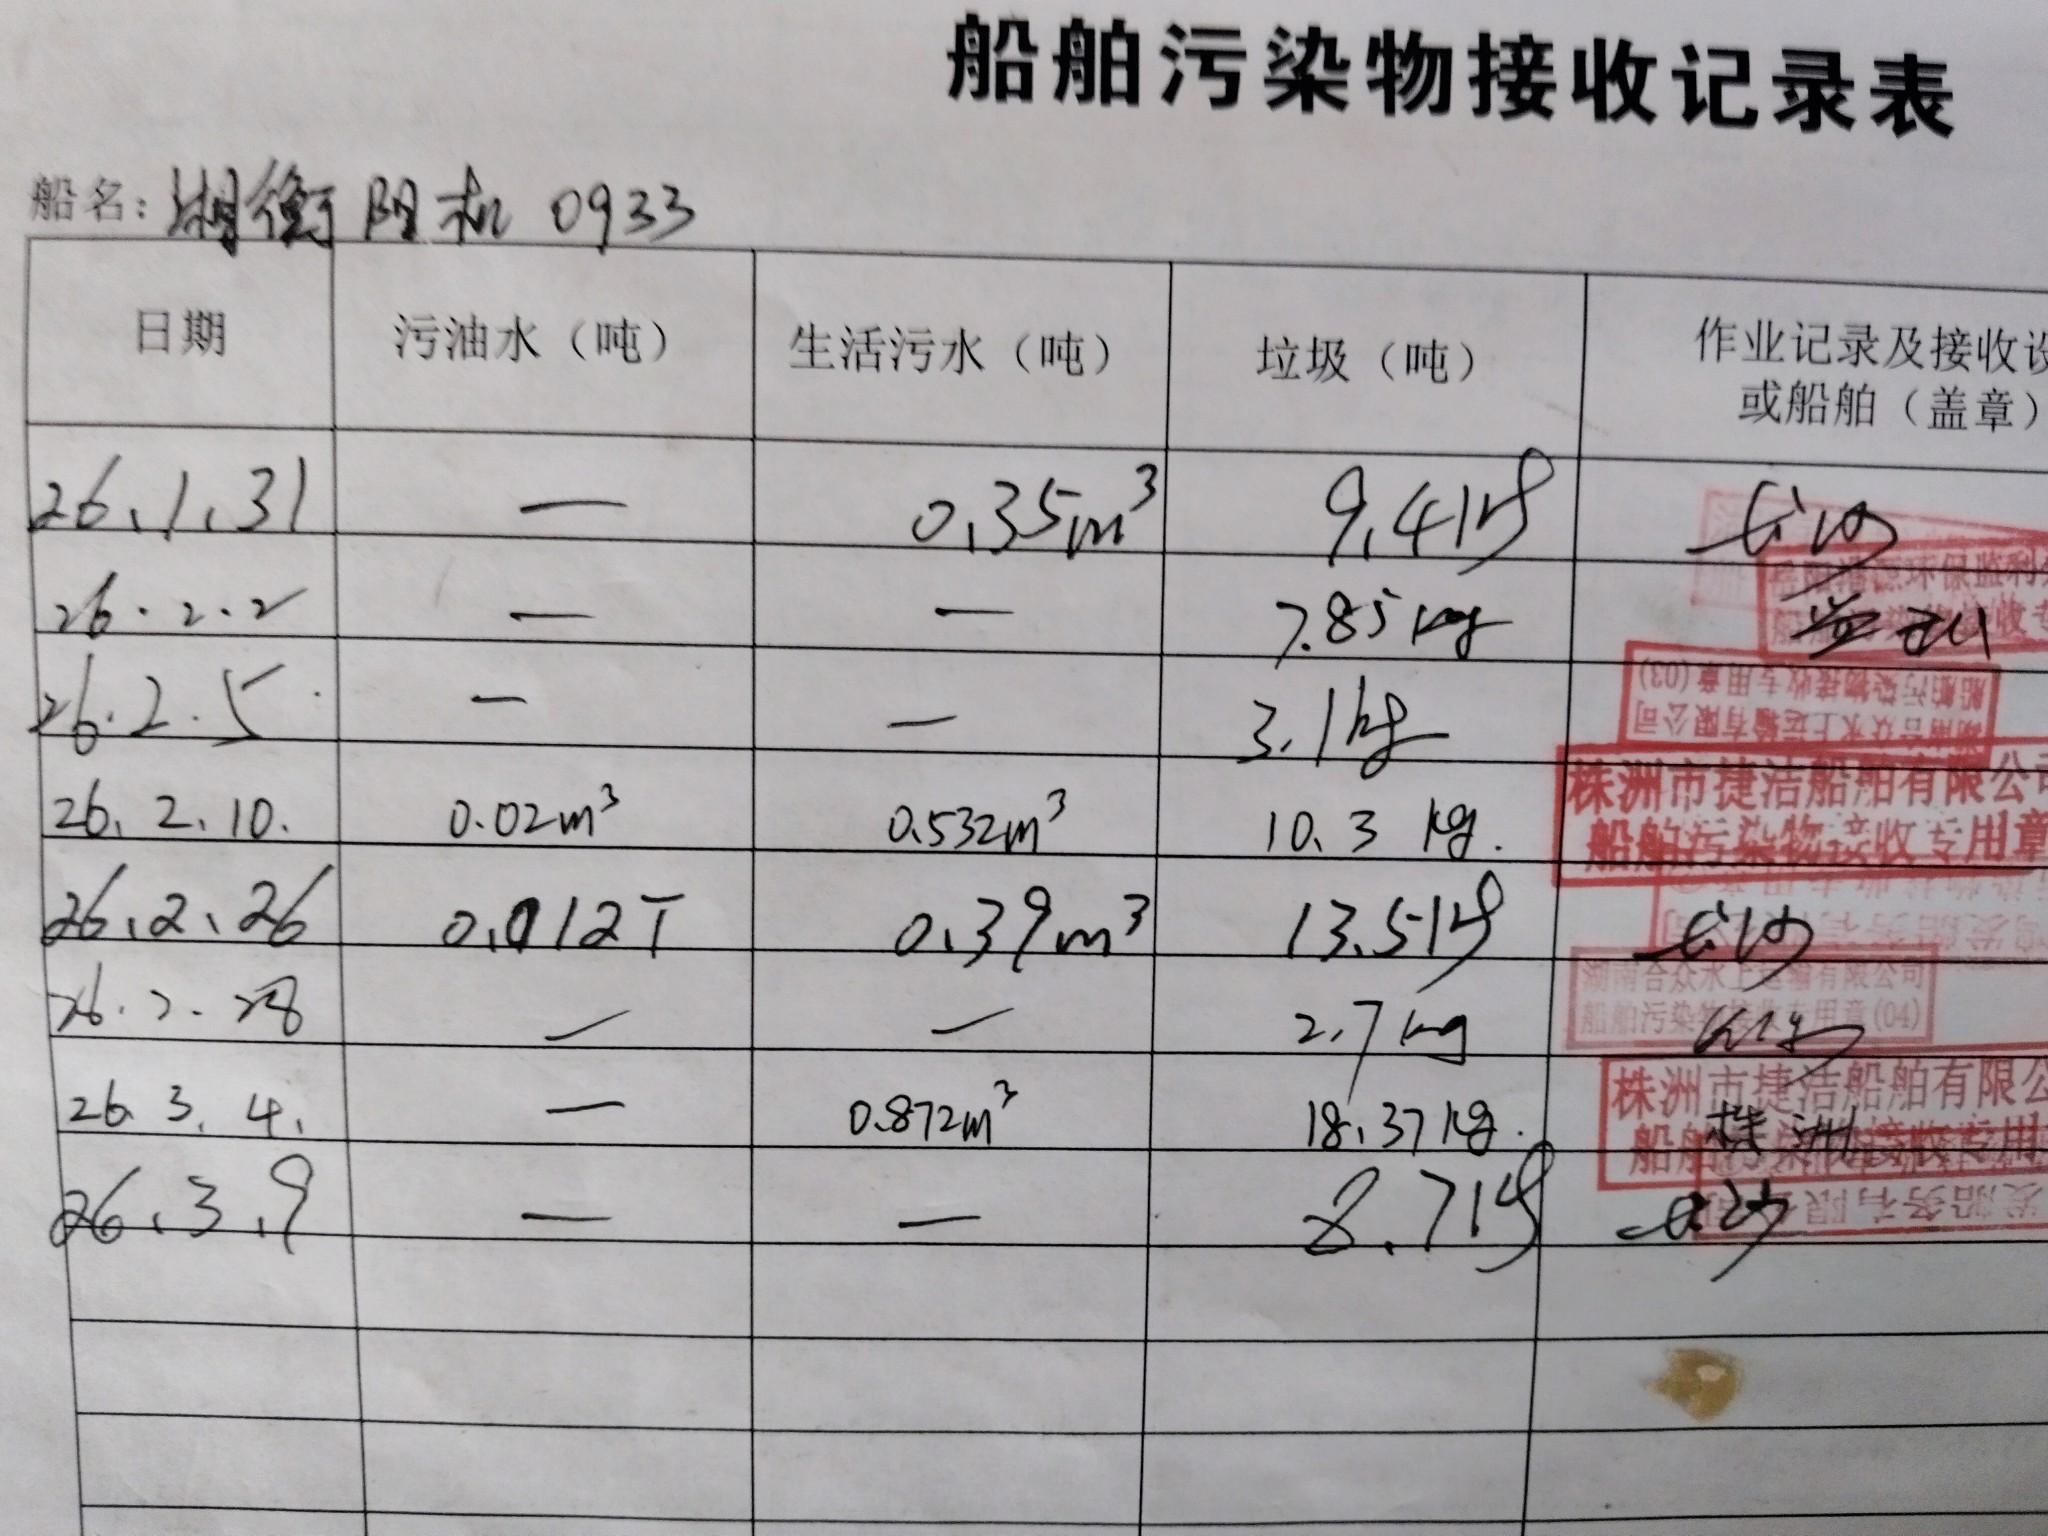 船舶污染物接收记录表
船名: 湘衡阳机 0933
日期 污油水（吨） 生活污水（吨） 垃圾（吨） 作业记录及接收设
或船舶（盖章）
26.1.31 — 0.35m³ 9.4kg 长沙
26.2.2 — — 7.85kg 监利
环保监利
26.2.5 — — 3.1kg
湖南合众水上运输有限公司
船舶污染物接收专用章(03)
26.2.10. 0.02m³ 0.532m³ 10.3 kg.
株洲市捷洁船舶有限公司
船舶污染物接收专用章
26.2.26 0.012T 0.39m³ 13.5kg 长沙
26.2.28 — — 2.7kg
湖南合众水上运输有限公司
船舶污染物接收专用章(04)
26.3.4. — 0.872m³ 18.37kg. 株洲
株洲市捷洁船舶有限公
船舶污染物接收专用
26.3.9 — — 8.7kg 长沙
发船务有限公司